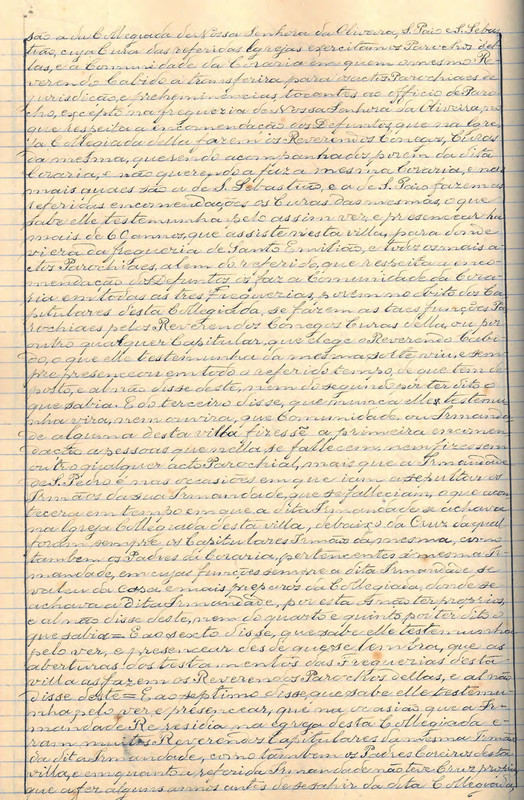 são a da Collegiada de Nossa Senhora da Oliveira, S. Paio e S. Sebas
tião, cuja Cura das referidas Igrejas exercitam os Parochos del
las, e a Comunidade da Coraria em quem o mesmo Re
verendo Cabido a transferira para os actos Parochiaes de
jurisdicção, e preheminencias, tocantes ao officio de Paro
cho, excepto na freguesia de Nossa Senhora da Oliveira, no
que respeita a incomendação dos Defuntos, que na Igre
ja Collegiada della fazem os Reverendos Conegos, Curas
da mesma, que sendo acompanhados porem da dita
Coraria, e não querendo a faz a mesma Coraria, e nas
mais quaes são a de S. Sebastião, e a de S. Paio fazem as
referidas encomendações os Curas das mesmas, o que
sabe elle testemunha pelo assim ver, e presencear ha
mais de 60 annos, que assiste nesta villa, para donde
viera da freguesia de Santo Emilião, e todos os mais a
ctos Parochiaes, alem do referido, que respeita a enco
mendação dos Defuntos os faz a Comunidade da Cora
ria em todas as tres freguesias, porem no obito dos Ca
pitulares desta Collegiada, se fazem as taes funções Pa
rochiaes pelos Reverendos Conegos Curas della, ou por
outro qualquer Capitular, que elege o Reverendo Cabi
do, o que elle testemunha da mesma sorte viu, e sem
pre presenceou em todo o referido tempo, de que tem de
posto, e al não disse deste, nem do segundo por ter dito o
que sabia. E do terceiro disse, que nunca elle testemu
nha vira, nem ouvira, que Comunidade ou Irmanda
de alguma desta villa fizesse a primeira encomen
dação a pessoas que nella se fallecem nem fizessem
outro qualquer acto Parochial, mais que a Irmandade
de S. Pedro e nas occasiões em que iam a sepultar os
Irmãos da sua Irmandade, que se falleciam, o que acon
tecera em tempo em que a dita Irmandade se achava
na Igreja Collegiada desta villa, debaixo da Cruz da qual
foram sempre os Capitulares Irmãos da mesma, como
tambem os Padres da Coraria, pertencentes á mesma Ir
mandade, em cujas funções sempre a dita Irmandade se
valeu da Cruz e mais preparos da Collegiada, donde se
achava a dita Irmandade, por esta os não ter proprios,
e al não disse deste, nem do quarto e quinto por ter dito o
que sabia = E ao sexto disse, que sabe elle testemunha
pelo ver, e presencear desde que se lembra, que as
aberturas dos testamentos das Freguesias desta
villa as fazem os Reverendos Parochos dellas, e al não
disse deste = E ao septimo disse, que sabe elle testemu
nha pelo ver e presencear, que na occasião que a Ir
mandade Residia na Igreja desta Collegiada e
ram muitos Reverendos Capitulares da mesma Irmãos
da dita Irmandade, como tambem os Padres Coreiros desta
villa, e emquanto a referida Irmandade não teve Cruz propria
que a fez alguns annos antes de se sahir da dita Collegiada,